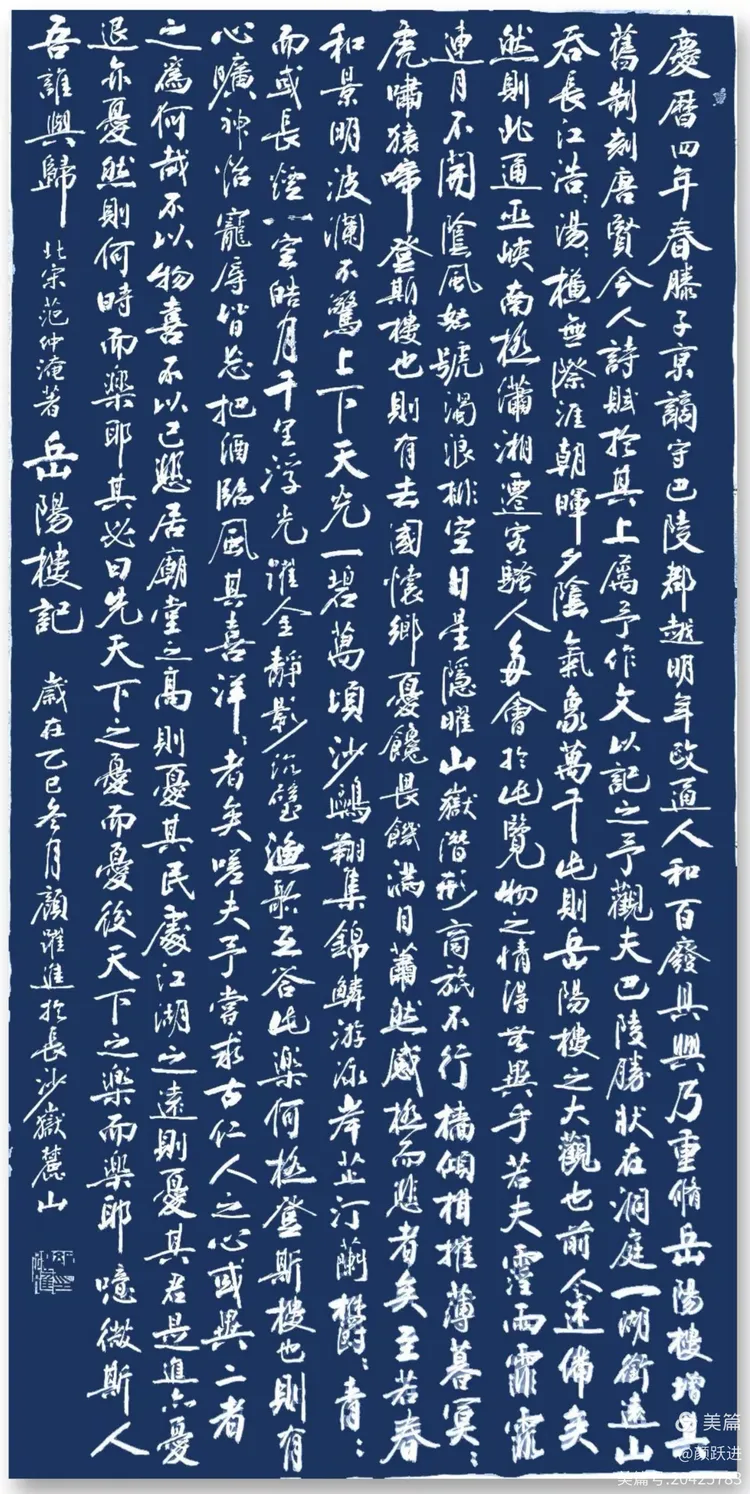 慶曆四年春滕子京謫守巴陵郡越明年政通人和百廢具興乃重脩岳陽樓增其
舊制刻唐賢今人詩賦於其上屬予作文以記之予觀夫巴陵勝狀在洞庭一湖銜遠山
吞長江浩:湯:橫無際涯朝暉夕陰氣象萬千此則岳陽樓之大觀也前人述備矣
然則北通巫峽南極瀟湘遷客騷人多會於此覽物之情得無異乎若夫霪雨霏霏
連月不開陰風怒號濁浪排空日星隱曜山嶽潛形商旅不行檣傾楫摧薄暮冥:
虎嘯猿啼登斯樓也則有去國懷鄉憂讒畏譏滿目蕭然感極而悲者矣至若春
和景明波瀾不驚上下天光一碧萬頃沙鷗翔集錦鱗游泳岸芷汀蘭鬱:青:
而或長煙一空皓月千里浮光躍金靜影沉璧漁歌互答此樂何極登斯樓也則有
心曠神怡寵辱皆忘把酒臨風其喜洋:者矣嗟夫予嘗求古仁人之心或異二者
之為何哉不以物喜不以己悲居廟堂之高則憂其民處江湖之遠則憂其君是進亦憂
退亦憂然則何時而樂耶其必曰先天下之憂而憂後天下之樂而樂耶噫微斯人
吾誰與歸 北宋范仲淹著 岳陽樓記 歲在乙巳冬月顏躍進於長沙嶽麓山
美篇
@颜跃进
美篇号:20425783